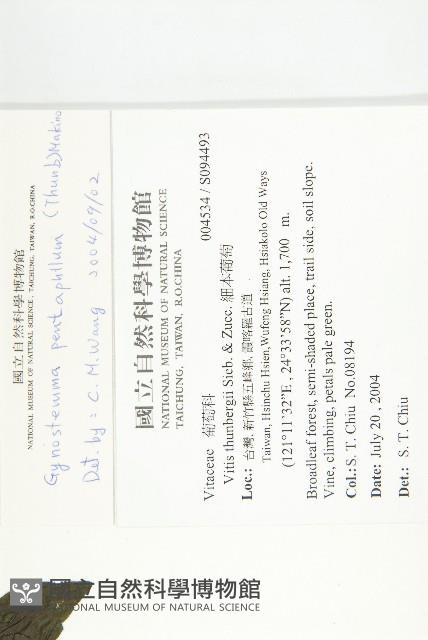 國立自然科學博物館
NATIONAL MUSEUM OF NATURAL SCIENCE, TAICHUNG, TAIWAN, R.O.CHINA
Gynostemma pentaphllum (Thunb) Makino
Det. by: C. M. Wang 2004/09/02
國立自然科學博物館
NATIONAL MUSEUM OF NATURAL SCIENCE
TAICHUNG, TAIWAN, R.O.CHINA
Vitaceae 葡萄科 004534 / S094493
Vitis thunbergii Sieb. & Zucc. 細本葡萄
Loc.: 台灣, 新竹縣五峰鄉, 霞喀羅古道 .
Taiwan, Hsinchu Hsien, Wufeng Hsiang, Hsiakolo Old Ways
(121°11'32"E , 24°33'58"N) alt. 1,700 m.
Broadleaf forest, semi-shaded place, trail side, soil slope.
Vine, climbing, petals pale green.
Col.: S. T. Chiu No.08194
Date: July 20 , 2004
Det.: S. T. Chiu
國立自然科學博物館
NATIONAL MUSEUM OF NATURAL SCIENCE